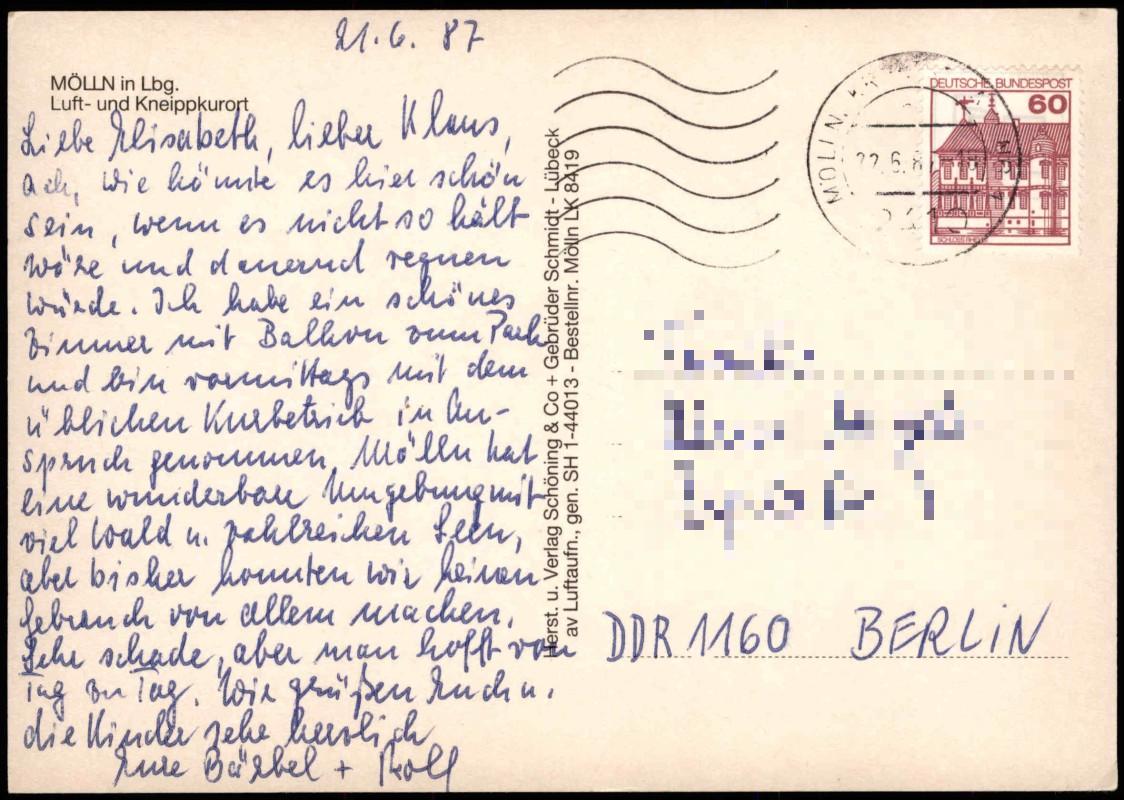 21.6. 87
MÖLLN in Lbg.
Luft- und Kneippkurort
Liebe Elisabeth, lieber Klaus,
ach, wie könnte es hier schön
sein, wenn es nicht so kalt
wäre und dauernd regnen
würde. Ich habe ein schönes
Zimmer mit Balkon zum Park
und bin vormittags mit dem
üblichen Kurbetrieb in An-
spruch genommen. Mölln hat
eine wunderbare Umgebung mit
viel Wald u. zahlreichen Seen,
aber bisher konnten wir keinen
Gebrauch von allem machen.
Sehr schade, aber man hofft von
Tag zu Tag. Wir grüßen Euch u.
die Kinder sehr herzlich
Eure Bärbel + Rolf
Herst. u. Verlag Schöning & Co + Gebrüder Schmidt - Lübeck
av Luftaufn., gen. SH 1-44013 - Bestellnr. Mölln LK 8419
DEUTSCHE BUNDESPOST
60
MÖLLN,
22.6.87
DDR 1160 BERLIN